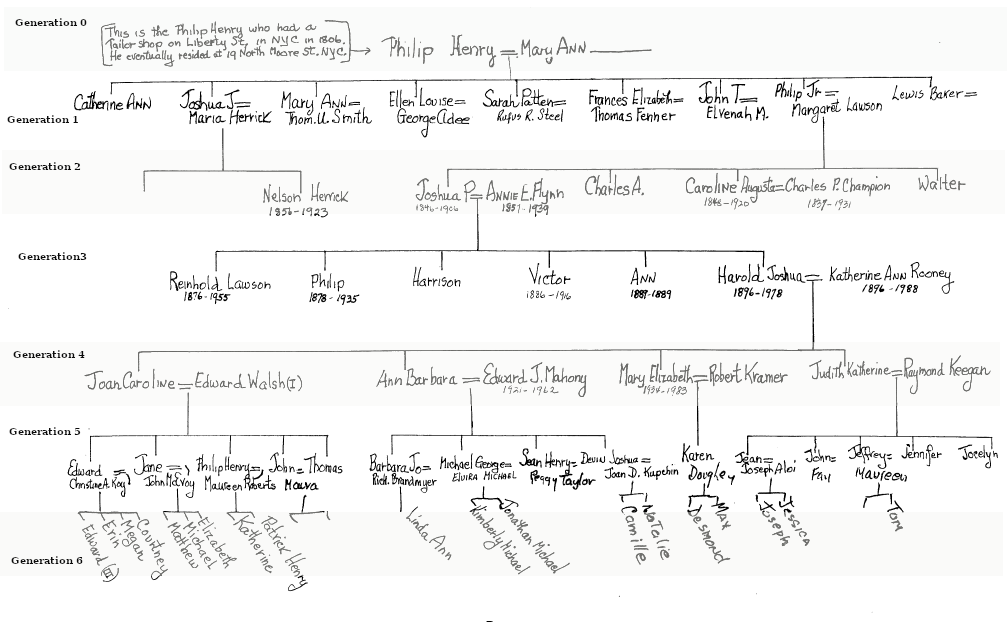 Generation 0
This is the Philip Henry who had a
Tailor shop on Liberty St, in NYC in 1806.
He eventually resided at 19 North Moore St. NYC.
Philip Henry = Mary ANN
Generation 1
Catherine ANN
Joshua J =
Maria Herrick
Mary ANN =
Thom. U. Smith
Ellen Louise =
George Adee
Sarah Patten =
Rufus R. Steel
Frances Elizabeth =
Thomas Fenner
John T =
Elvenah M.
Philip Jr =
Margaret Lawson
Lewis Baker =
Generation 2
Nelson Herrick
1856-1923
Joshua P = ANNIE E. Flynn
1846-1906
1857-1939
Charles A.
Caroline Augusta = Charles P. Champion
1848-1920
1839-1931
Walter
Generation3
Reinhold Lawson
1876-1955
Philip
1878-1935
Harrison
Victor
1886-1916
ANN
1887-1889
Harold Joshua = Katherine ANN Rooney
1896-1978
1896-1988
Generation 4
Joan Caroline = Edward Walsh (I)
Ann Barbara = Edward J. Mahony
1921-1962
Mary Elizabeth = Robert Kramer
1934-1983
Judith Katherine = Raymond Keegan
Generation 5
Edward =
Christine A. Kay
Jane =
John McVoy
Philip Henry =
Maureen Roberts
John =
Maura
Thomas
Barbara Jo =
Rich. Brandmyer
Michael George =
Elvira Michael
Sean Henry =
Peggy Taylor
Devin Joshua =
Joan D. Kupchin
Karen
Doughey
Jean =
Joseph Aloi
John =
Jeffrey =
Maureen
Jennifer
Jocelyn
Generation 6
Edward (III)
Erin
Megan
Courtney
Matthew
Michael
Elizabeth
Katherine
Patrick Henry
Linda Ann
Kimberly Michael
Jonathan Michael
Camille
Natalie
Desmond
Max
Joseph
Jessica
Tom